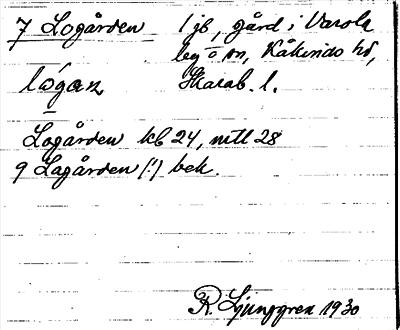 7 Logården 1 jb, gård i Varola
leg o sn, Kåkinds hd,
lógan Skarab. l.
Logården kb 24, mtl 28
9 Lagården (!) bek.
R. Ljunggren 1930